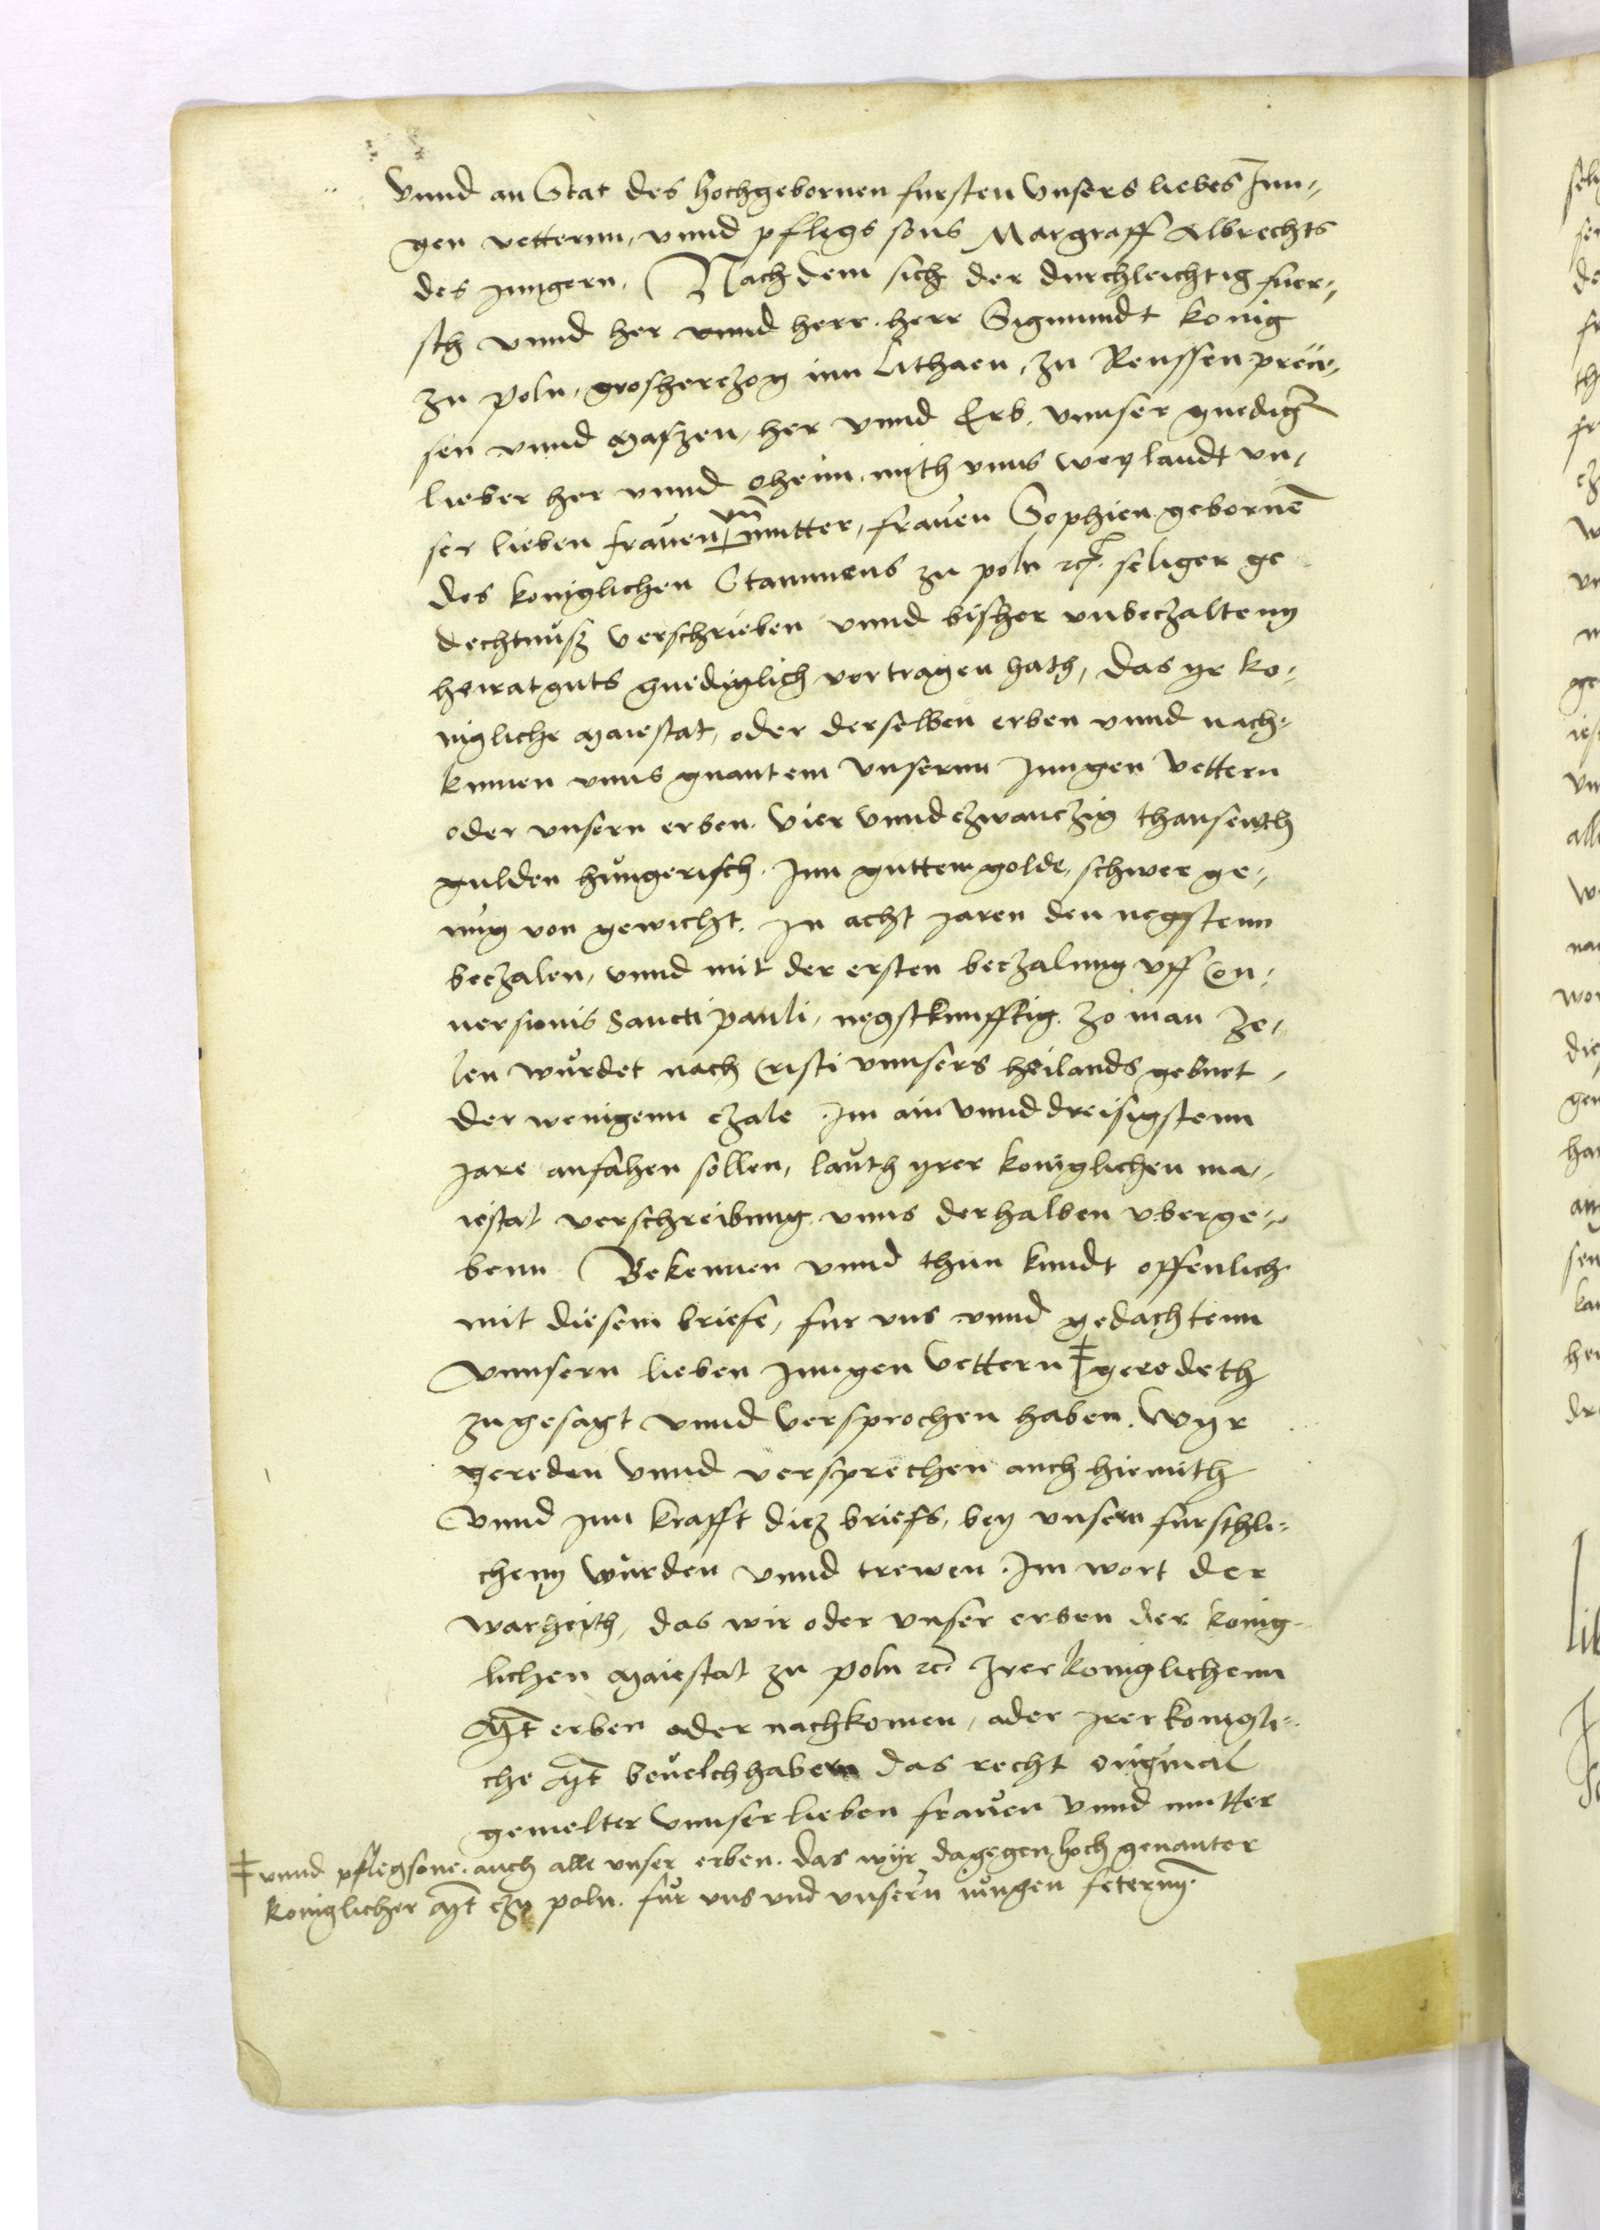 vnnd an Stat des hochgebornen fursten vnsers liebes Jun⸗
gen vetternn, vnnd pflegs sons Margraff Albrechts
des jungern, Nachdem sich der durchleichtig fuer⸗
sth vnnd her vnnd herr. herr Sigmundt konig
zu poln, grosherczog inn Lithaen, zu Reussen preüe⸗
sen vnnd Maszen, her vnnd Erb. vnnser gnediger
lieber her vnnd oheim, mith vnns weylandt vn⸗
ser lieben frauen vn mutter, frauen Sophien gebornē
des koniglichen Stammens zu poln rc. seliger ge
dechtnuß verschrieben vnnd bißher vnbeczalteny
heiratguts gnediglich vertragen hath, das ye ko⸗
nigliche Maiestat, oder derselben erben vnnd nach⸗
kumen vnns gnantem vnsernn jungen vettern
oder vnsern erben. vier vnndczwanczig thausenth
gulden hungerisch. Jnn guttem golde, schwer ge⸗
nug von gewicht. Jn acht jaren den negstenn
beczalen, vnnd mit der ersten beczalung vff Con⸗
uersionis Sancti pauli, negstkunfftig. zo man ze⸗
len wurdet nach Cristi vnnsers heilands geburt,
der wenigenn czale Jm ain vnnd dreisigstenn
jare anfahen sollen, lauth yrer koniglichen ma⸗
iestat verschreibung vnns derhalben vberge⸗
benn Bekennen vnnd thun kundt offenlich
mit diesem briefe, fur vns vnnd gedachtenn
vnnsern lieben jungen vettern ‡ geredeth
zugesagt vnnd versprochen haben. Wyr
gereden vnnd versprechen auch hiemith
vnnd jnn krafft dicz briefs, bey vnsern fursthli⸗
cheny wurden vnnd trewen. Jm wort der
warheith, das wir oder vnser erben der konig⸗
lichen Maiestat zu poln rc. Jrer koniglichenn
Mt erben oder nachkomen, ader jrer konigli⸗
che Mt beuelchhabern das recht original
gemelter vnnser lieben frauen vnnd mutter
‡ vnnd pflegsone. auch alle vnser erben. das wyr dagegen hoch genanter
koniglicher Mt czu poln. fur vns vnd vnsern jungen feterny.